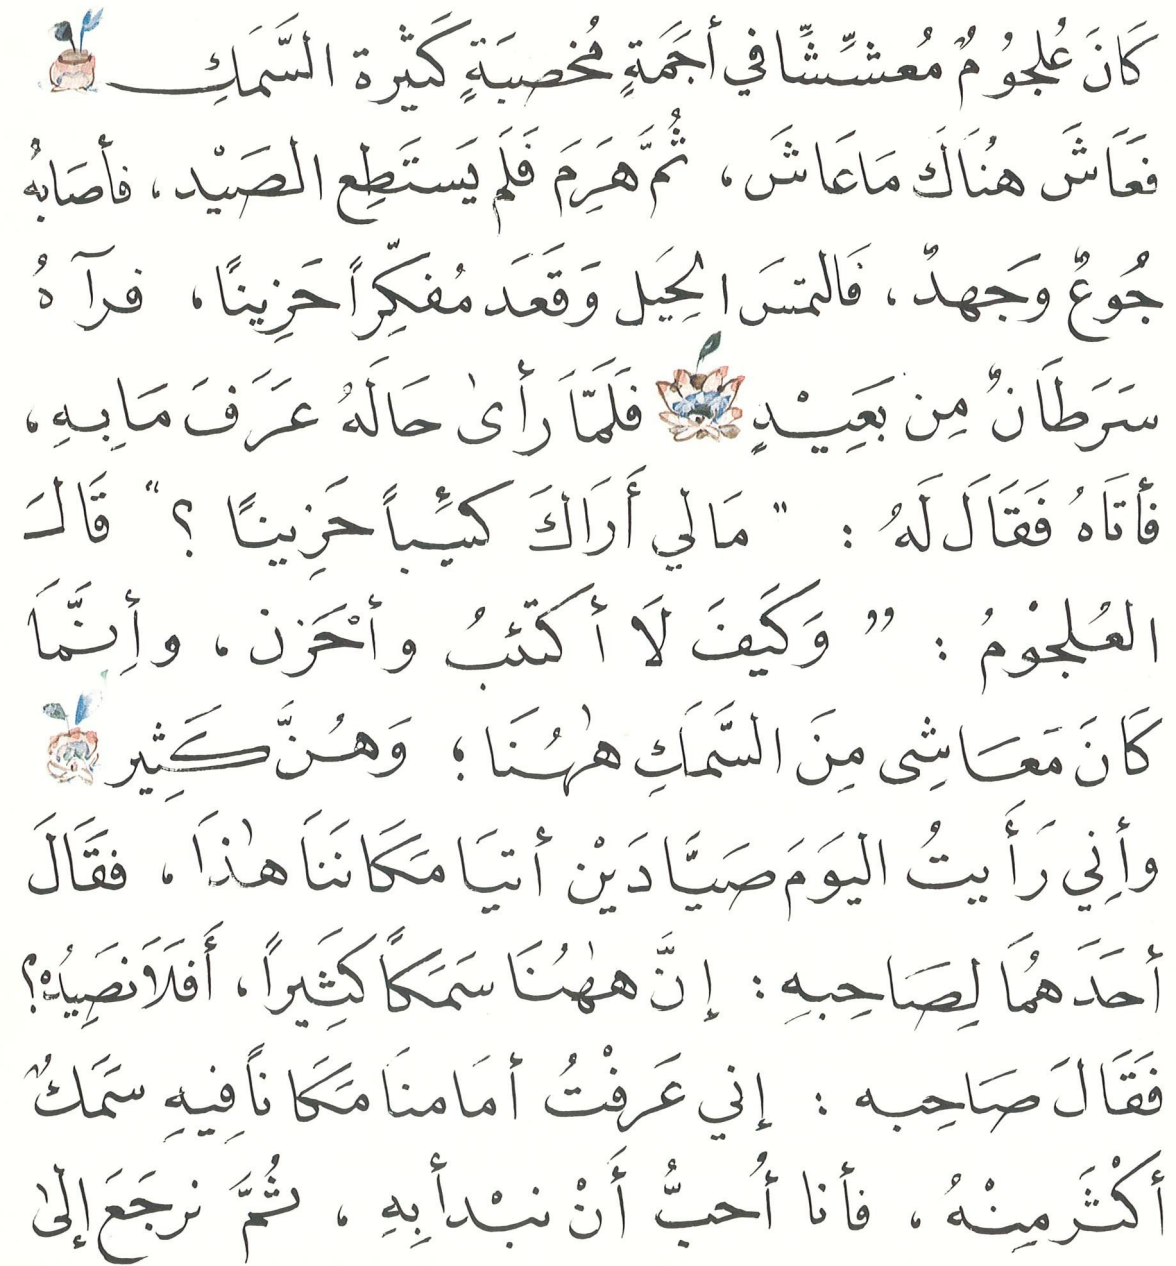 كَانَ عُلجُومٌ مُعشِّشًا في أجَمَةٍ مُخصبَةٍ كَثيرة السَّمَكِ
فعَاشَ هنُاَكَ مَاعَاشَ، ثُمَّ هَرِمَ فَلَم يَستَطِع الصَيْد، فأصَابهُ
جُوعٌ وَجَهدٌ، فَالتمسَ الحِيَل وَقَعَد مُفكِّراً حَزِينًا، فرآهُ
سَرَطَانٌ مِن بَعَيِيْدٍ فَلَمّاَ رَأىٰ حَالَهُ عَرَفَ مَا بِهِ،
فأتَاهُ فَقَالَ لَهُ : " مَالي أَرَاكَ كئيباً حَزِينًا ؟" قَالَ
العُلجْوْمُ : " وَكَيفَ لَا أكتَئبُ وأحْزَن، وإنَّمَا
كَانَ مَعَاشِى مِنَ السَّمَكِ هٰهُنَا؛ وَهُنَّ كَثِير
وأِني رَأَيتُ اليَومَ صَيَّادَيْن أتيَا مَكَانَنَا هٰذَا، فقَالَ
أحَدَهمَا لِصَاحِبهِ : إنَّ هٰهُنَا سَمَكًا كَثِيراً، أَفَلَا نَصِيدُهْ؟
فَقَالَ صَاحِبه : إني عَرَفْتُ أمَامنَا مَكَاناً فِيهِ سَمَكٌ
أكْثَر مِنْهُ، فأنا أُحبُّ أَنْ نبْدأ بِهِ، ثُمَّ نرجَعَ إلىٰ